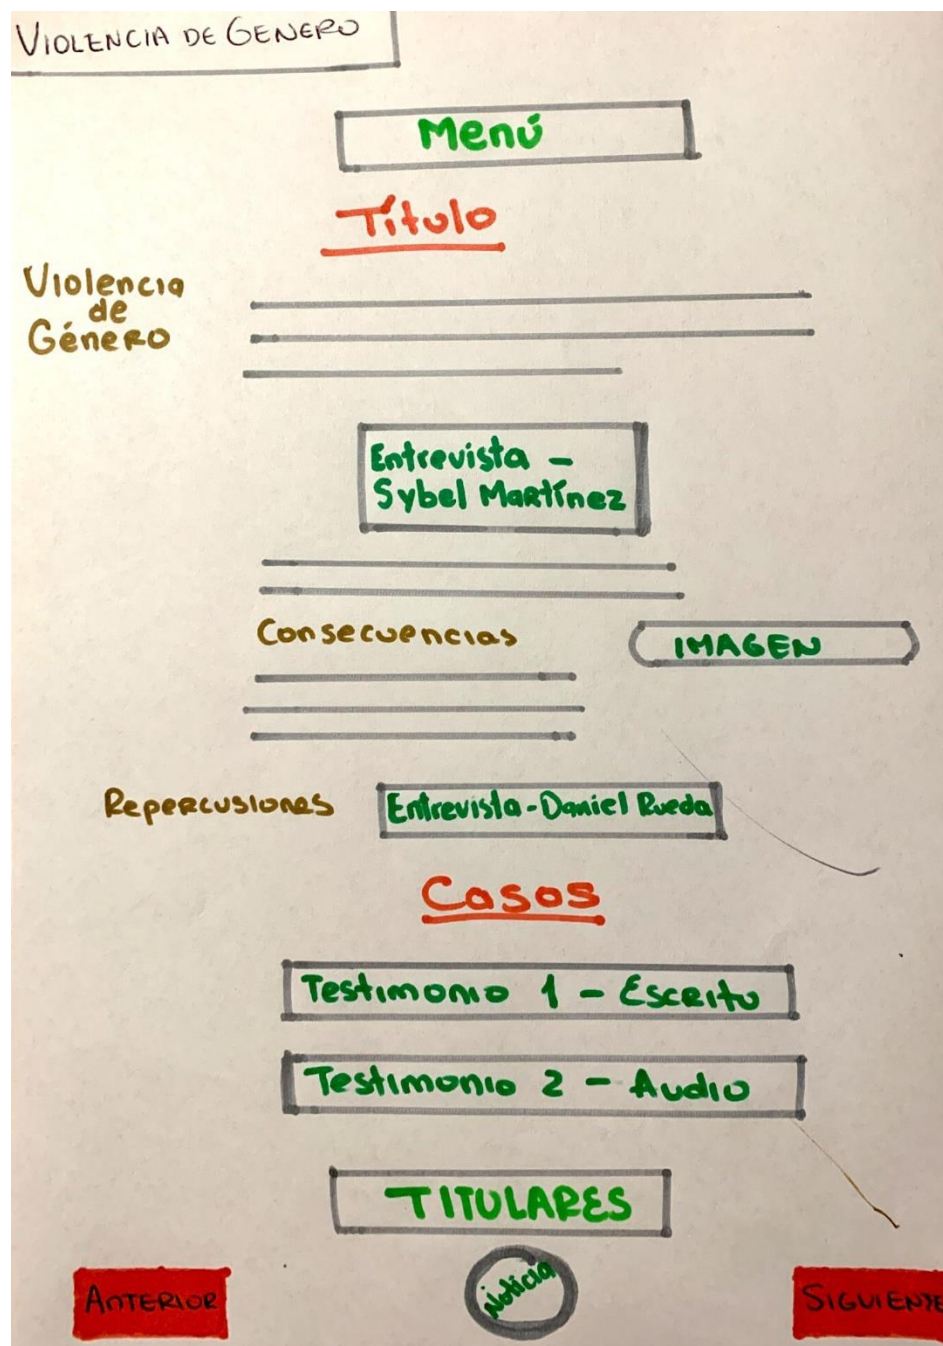 VIOLENCIA DE GENERO
Menú
Título
Violencia
de
Género
Entrevista -
Sybel Martínez
Consecuencias
IMAGEN
Repercusiones
Entrevista-Daniel Rueda
Casos
Testimonio 1 - Escrito
Testimonio 2 - Audio
TITULARES
Noticia
ANTERIOR
SIGUIENTE